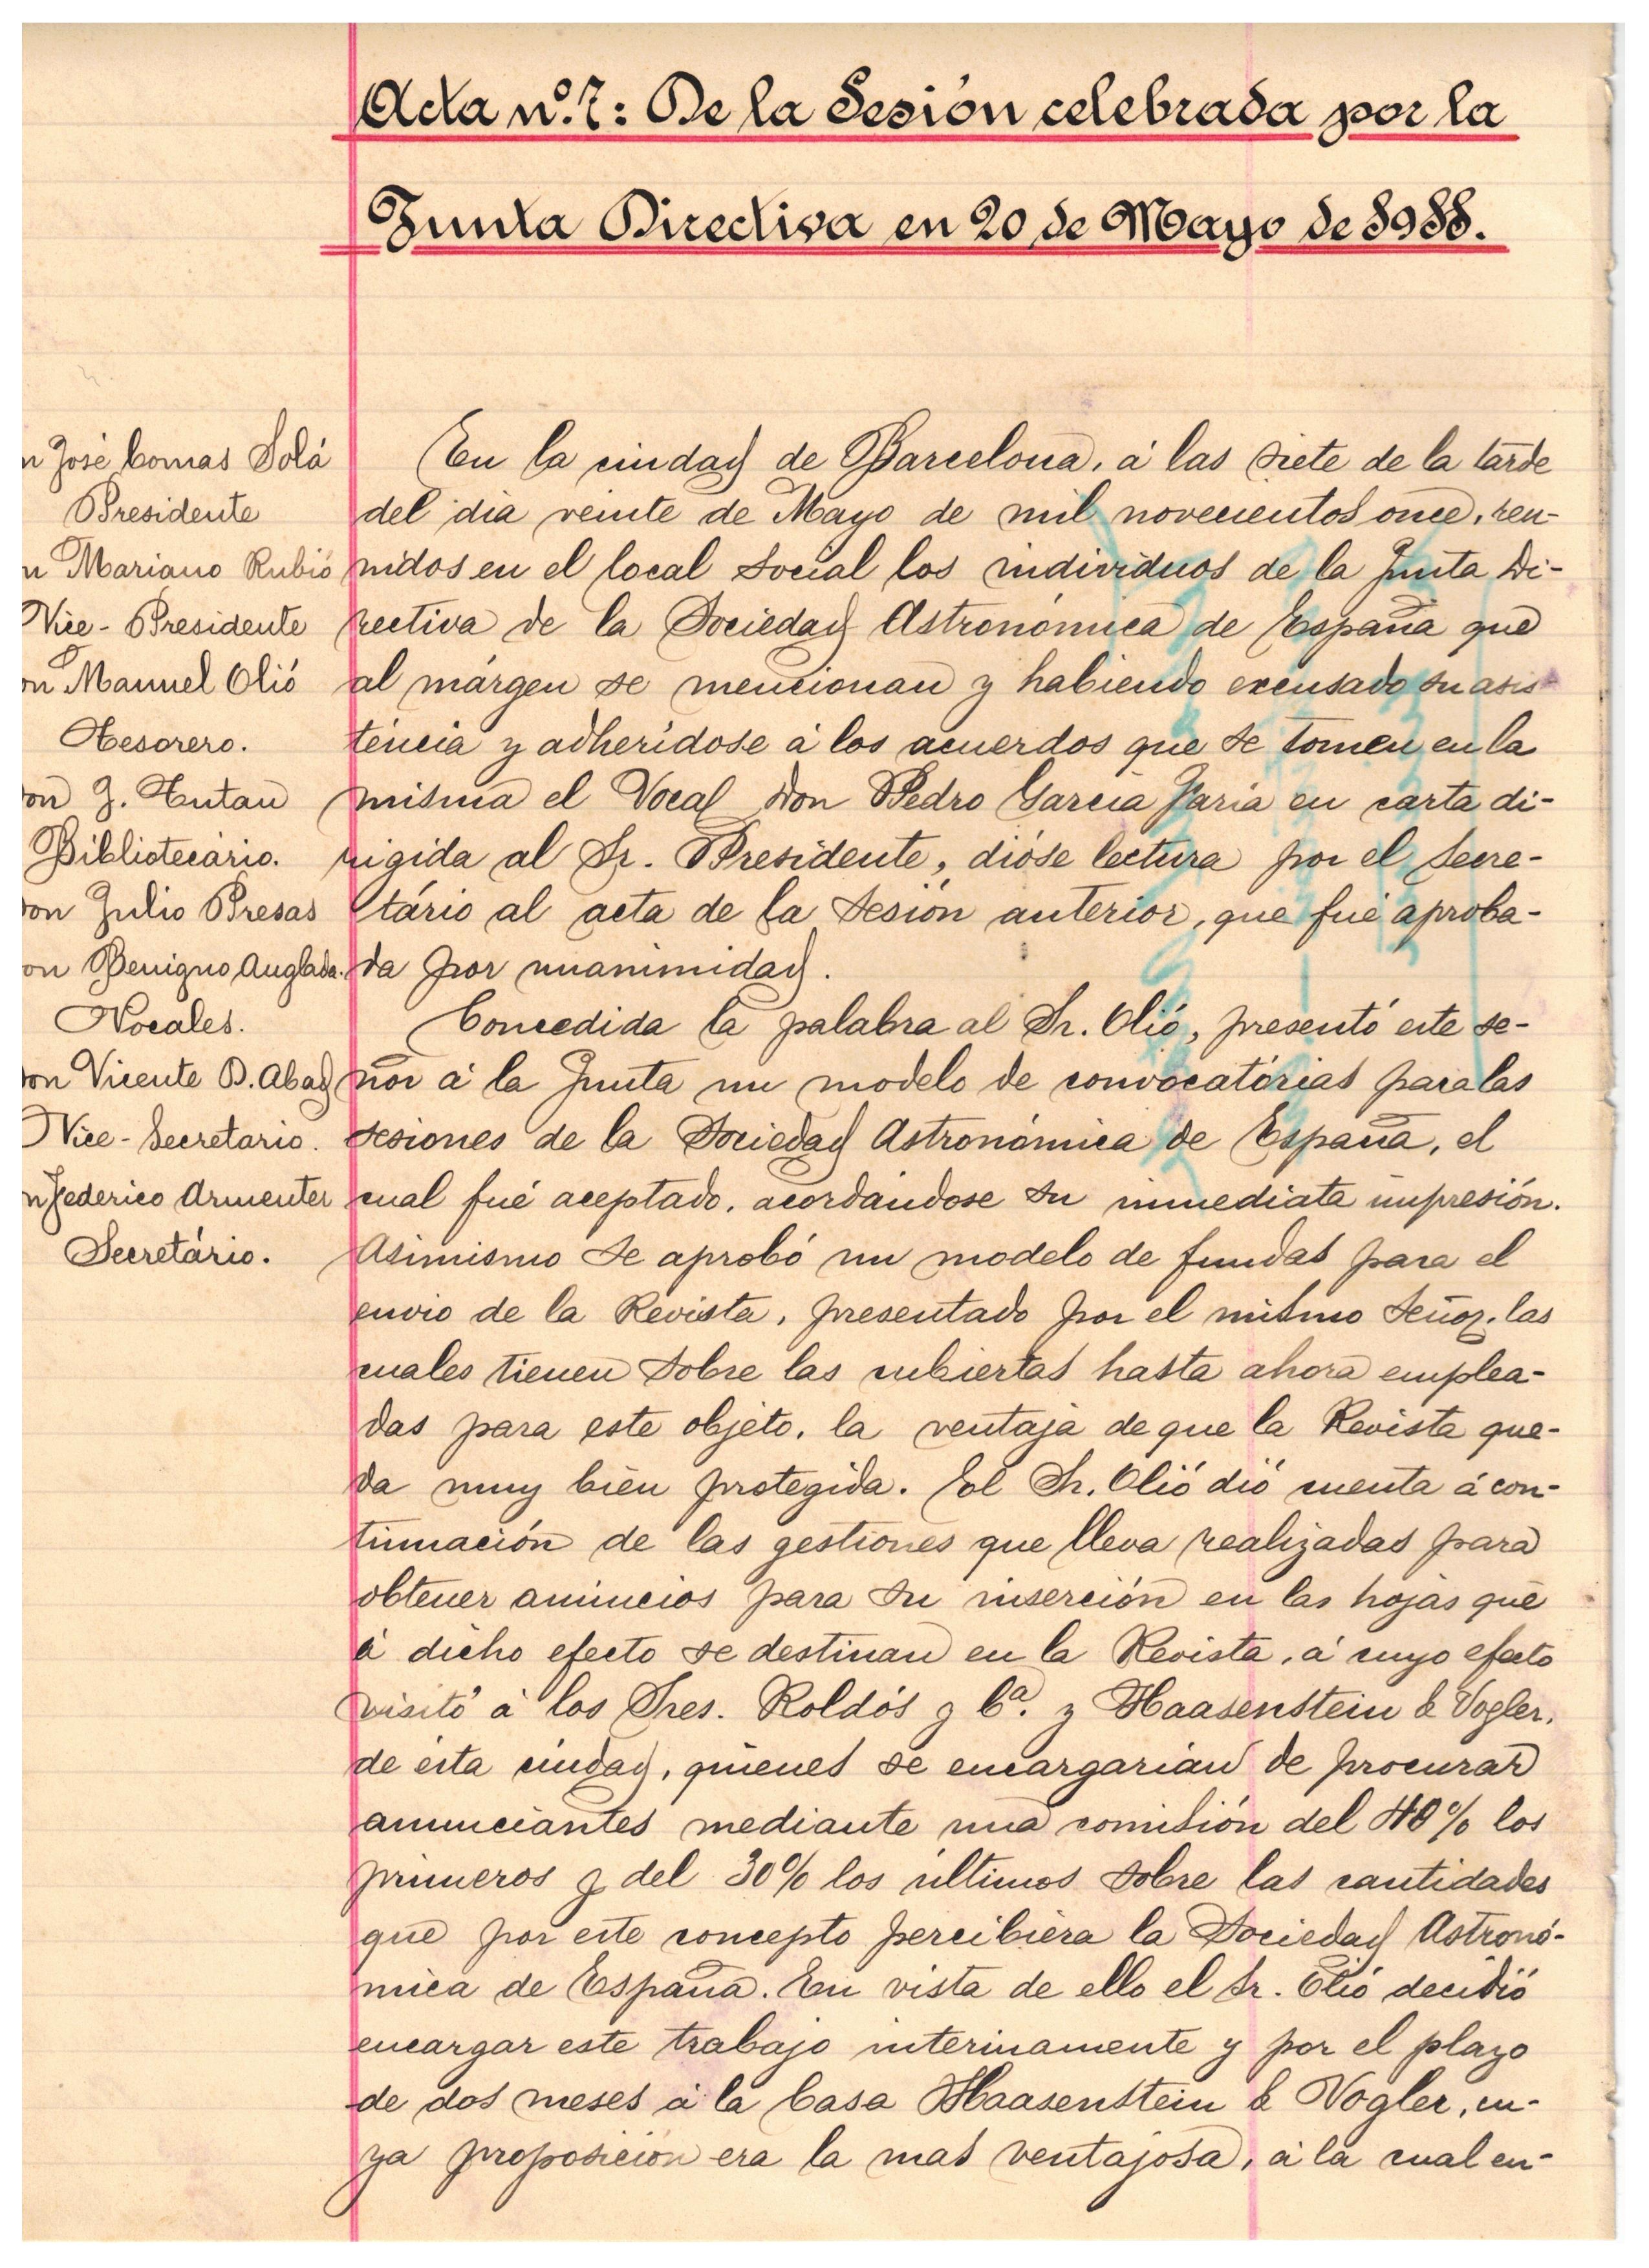 Acta nº. 7: De la Sesión celebrada por la
Junta Directiva en 20 de Mayo de 1911.
n José Comas Solá
Presidente
n Mariano Rubió
Vice-Presidente
on Manuel Olió
Tesorero.
on J. Tutau
Bibliotecário.
on Julio Presas
on Benigno Anglada.
Vocales.
on Vicente D. Abad
Vice-Secretario.
n Federico Armenter
Secretário.
En la ciudad de Barcelona, á las siete de la tarde
del día veinte de Mayo de mil novecientos once, reu-
nidos en el local social los individuos de la Junta Di-
rectiva de la Sociedad Astronómica de España que
al márgen se mencionan y habiendo excusado su asis-
téncia y adherídose á los acuerdos que se tomen en la
misma el Vocal Don Pedro García Faria en carta di-
rigida al Sr. Presidente, dióse lectura por el Secre-
tário al acta de la sesión anterior, que fué aproba-
da por unanimidad.
Concedida la palabra al Sr. Olió, presentó este se-
ñor á la Junta un modelo de convocatórias para las
sesiones de la Sociedad Astronómica de España, el
cual fué aceptado, acordándose su inmediata impresión.
Asimismo se aprobó un modelo de fundas para el
envio de la Revista, presentado por el mismo Señor, las
cuales tienen sobre las cubiertas hasta ahora emplea-
das para este objeto, la ventaja de que la Revista que-
da muy bien protegida. El Sr. Olió dió cuenta á con-
tinuación de las gestiones que lleva realizadas para
obtener anuncios para su inserción en las hojas que
á dicho efecto se destinan en la Revista, á cuyo efecto
visitó á los Sres. Roldós y Cª. y Haasenstein & Vogler,
de esta ciudad, quienes se encargarían de procurar
anunciantes mediante una comisión del 40% los
primeros y del 30% los últimos sobre las cantidades
que por este concepto percibiera la Sociedad Astronó-
mica de España. En vista de ello el Sr. Olió decidió
encargar este trabajo interinamente y por el plazo
de dos meses á la Casa Haasenstein & Vogler, cu-
ya proposición era la mas ventajosa, á la cual en-